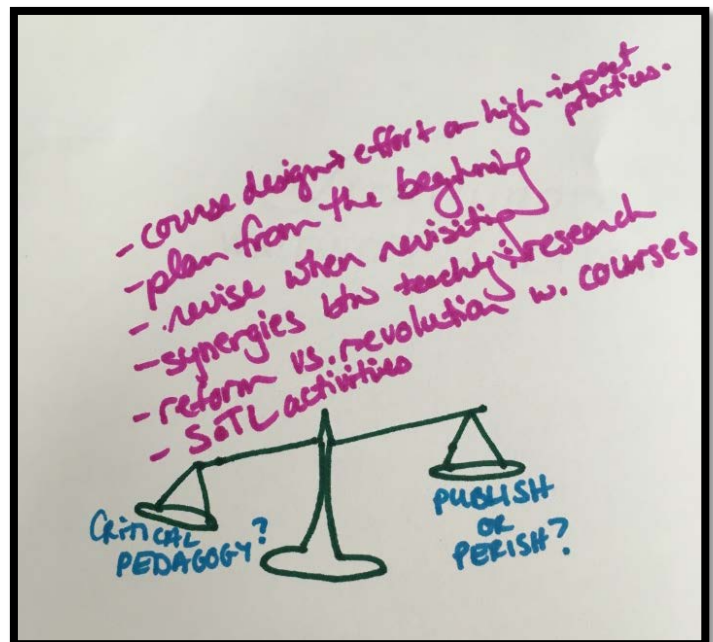 - course design → effort on high impact
practices.
- plan from the beginning
- revise when revisiting
- synergies btw teaching : research
- reform vs. revolution w. courses
- SoTL activities
CRITICAL
PEDAGOGY?
PUBLISH
OR
PERISH?